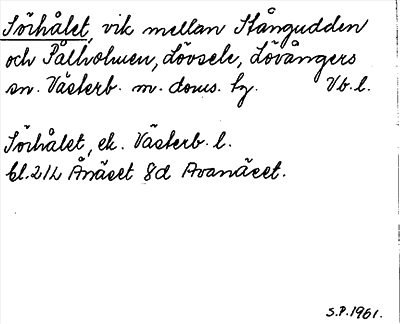 Sörhålet, vik mellan Stångudden
och Pålholmen, Lövsele, Lövångers
sn. Västerb. m. doms. hg. Vb. l.
Sörhålet, ek. Västerb. l.
bl. 21L Ånäset 8d Avanäset.
S.P. 1961.